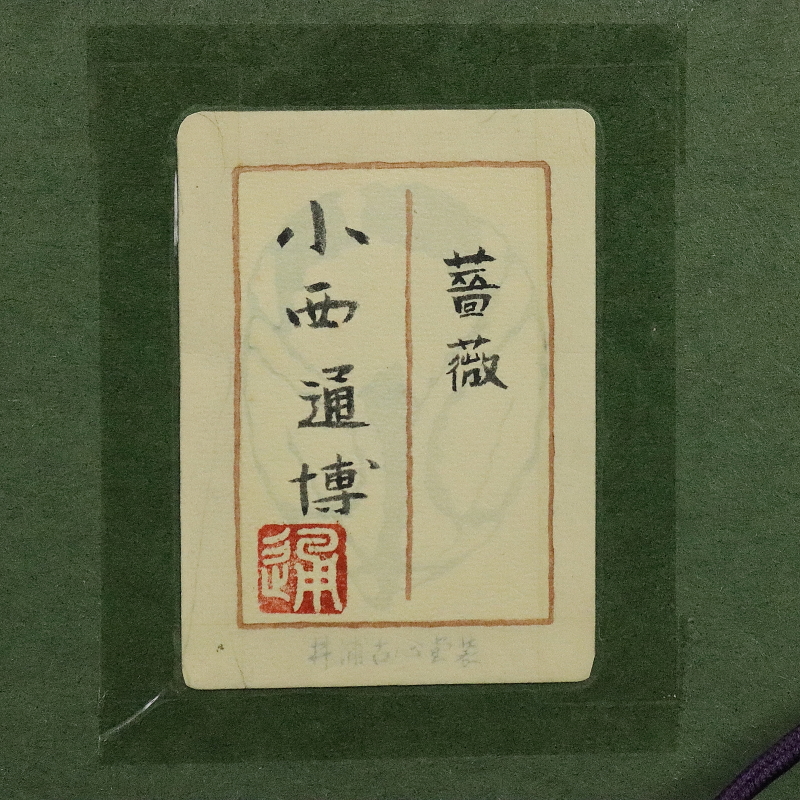 薔薇
小西通博
通